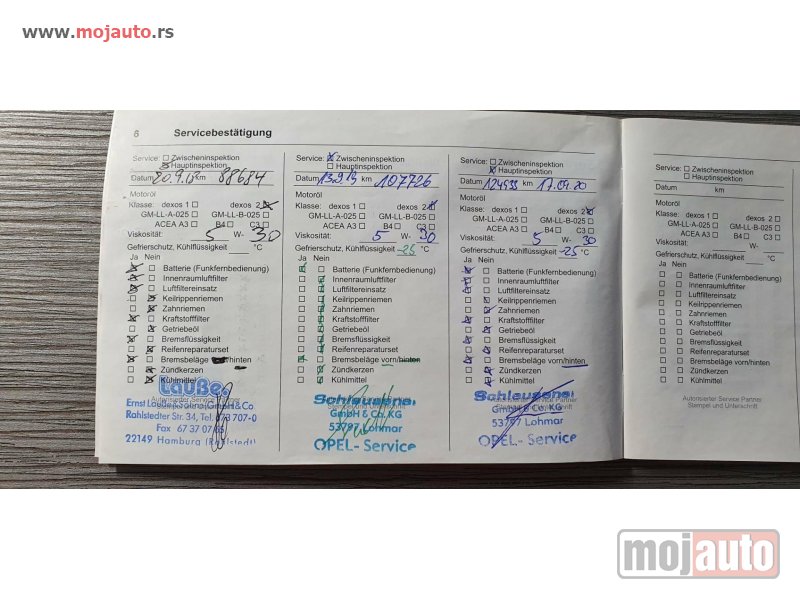 www.mojauto.rs
6 Servicebestätigung
Service: Zwischeninspektion
Hauptinspektion
Datum km 88684
Motoröl
Klasse: dexos 1 dexos 2
GM-LL-A-025 GM-LL-B-025
ACEA A3 B4 C3
Viskosität: 5 W- 30
Gefrierschutz, Kühlflüssigkeit °C
Ja Nein
Batterie (Funkfernbedienung)
Innenraumluftfilter
Luftfiltereinsatz
Keilrippenriemen
Zahnriemen
Kraftstofffilter
Getriebeöl
Bremsflüssigkeit
Reifenreparaturset
Bremsbeläge hinten
Zündkerzen
Kühlmittel
Rahlstedter Str. 34, Tel.
Fax 67 37 07
22149 Hamburg
Service: Zwischeninspektion
Hauptinspektion
Datum km 107726
Motoröl
Klasse: dexos 1 dexos 2
GM-LL-A-025 GM-LL-B-025
ACEA A3 B4 C3
Viskosität: 5 W- 30
Gefrierschutz, Kühlflüssigkeit -25 °C
Ja Nein
Batterie (Funkfernbedienung)
Innenraumluftfilter
Luftfiltereinsatz
Keilrippenriemen
Zahnriemen
Kraftstofffilter
Getriebeöl
Bremsflüssigkeit
Reifenreparaturset
Bremsbeläge vorn/hinten
Zündkerzen
Kühlmittel
GmbH & Co. KG
53797 Lohmar
OPEL-Service
Service: Zwischeninspektion
Hauptinspektion
Datum 124933 17.09.20
Motoröl
Klasse: dexos 1 dexos 2
GM-LL-A-025 GM-LL-B-025
ACEA A3 B4 C3
Viskosität: 5 W- 30
Gefrierschutz, Kühlflüssigkeit -25 °C
Ja Nein
Batterie (Funkfernbedienung)
Innenraumluftfilter
Luftfiltereinsatz
Keilrippenriemen
Zahnriemen
Kraftstofffilter
Getriebeöl
Bremsflüssigkeit
Reifenreparaturset
Bremsbeläge vorn/hinten
Zündkerzen
Kühlmittel
Co. KG
53797 Lohmar
OPEL-Service
Service: Zwischeninspektion
Hauptinspektion
Datum km
Motoröl
Klasse: dexos 1 dexos 2
GM-LL-A-025 GM-LL-B-025
ACEA A3 B4 C3
Viskosität: W-
Gefrierschutz, Kühlflüssigkeit °C
Ja Nein
Batterie (Funkfernbedienung)
Innenraumluftfilter
Luftfiltereinsatz
Keilrippenriemen
Zahnriemen
Kraftstofffilter
Getriebeöl
Bremsflüssigkeit
Reifenreparaturset
Bremsbeläge vorn/hinten
Zündkerzen
Kühlmittel
Autorisierter Service Partner
Stempel und Unterschrift
mojauto